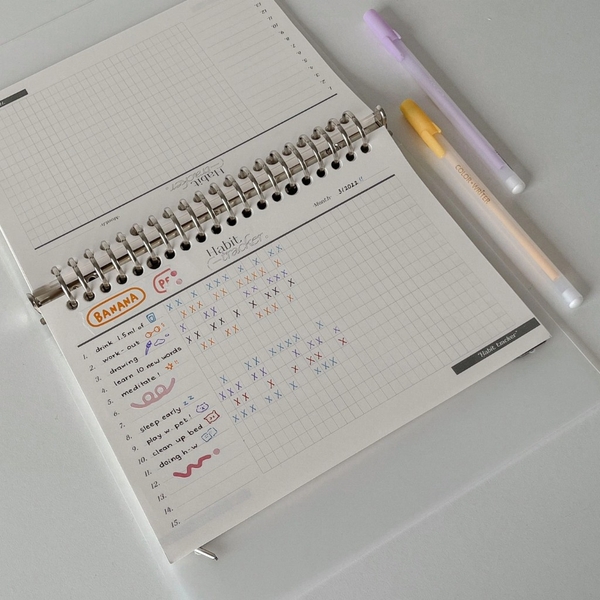 Habit
tracker
Month: 3/2022 !!
BANANA
PF
1. drink 1.5ml of
2. work-out
3. drawing
4. learn 10 new words
5. meditate!
6.
7.
8. sleep early z z
9. play w. pet!
10. clean up bed
11. doing h.w.
12.
13.
14.
15.
"Habit tracker"
Habit
tracker
Month:
COLOR WRITER